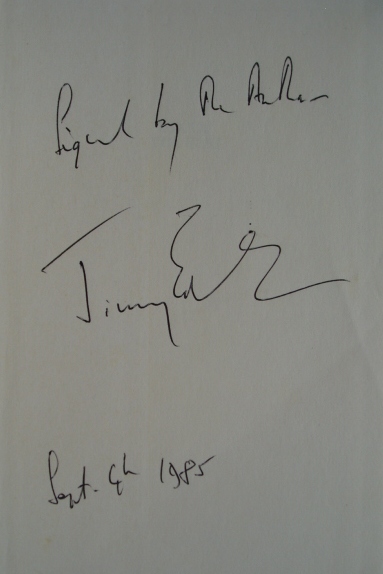 Signed by the Author
Jimmy Edwards
Sept. 4th 1985